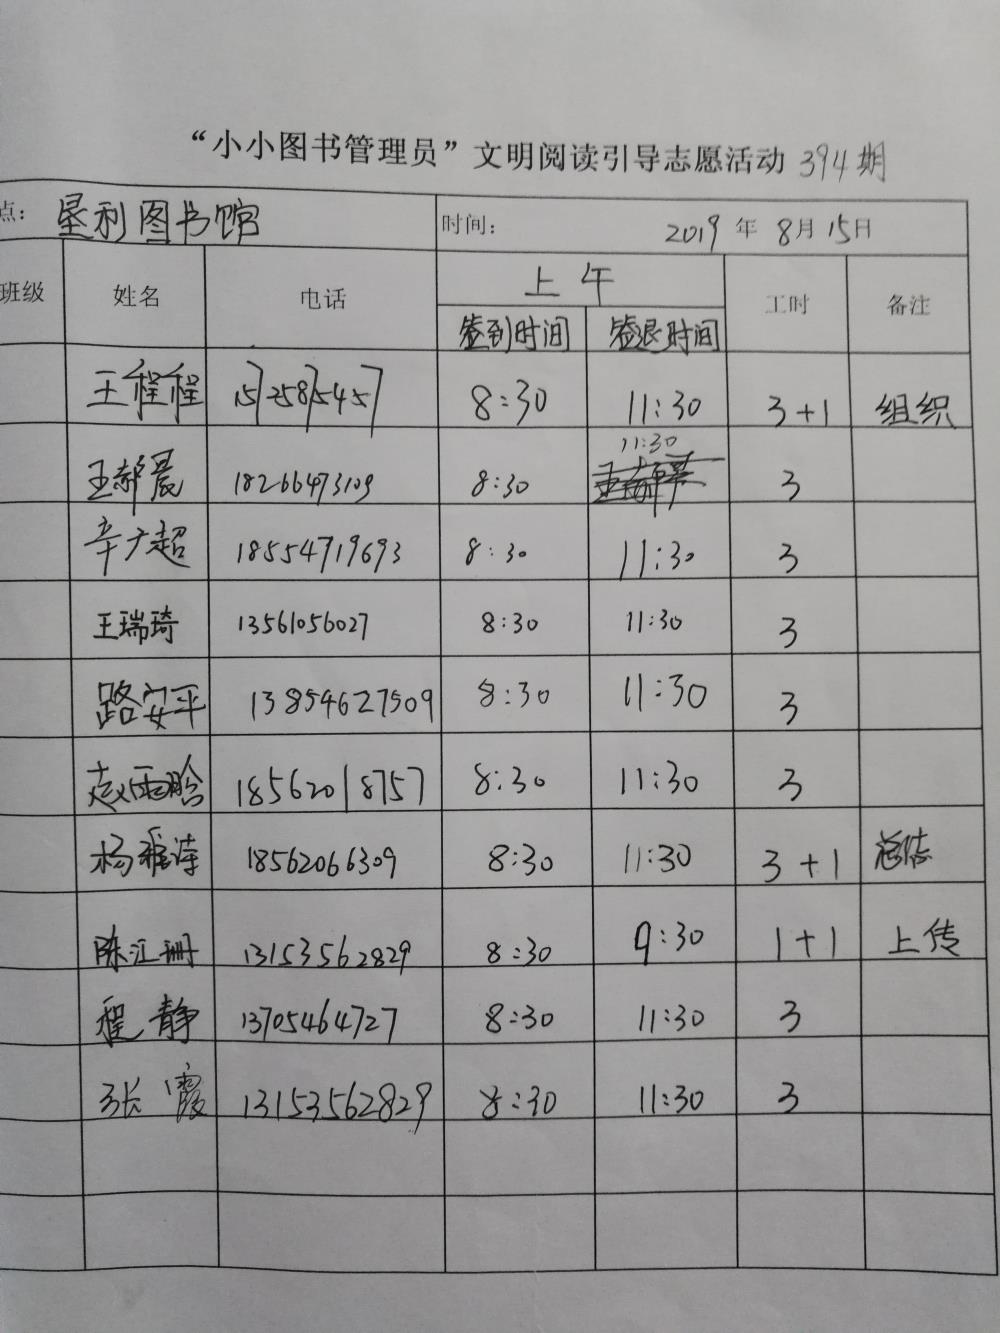 “小小图书管理员”文明阅读引导志愿活动 394期
点: 垦利图书馆 时间: 2019年8月15日
班级 姓名 电话 上午 工时 备注
签到时间 签退时间
王程程 15725875457 8:30 11:30 3+1 组织
11:30
王郝晨 18266473109 8:30 3
辛广超 18554719693 8:30 11:30 3
王瑞琦 13561056027 8:30 11:30 3
路安平 13854627509 8:30 11:30 3
赵雨晗 18562018757 8:30 11:30 3
杨雅涛 18562066309 8:30 11:30 3+1 总结
陈江珊 13153562829 8:30 9:30 1+1 上传
程静 13705464727 8:30 11:30 3
张霞 13153562829 8:30 11:30 3